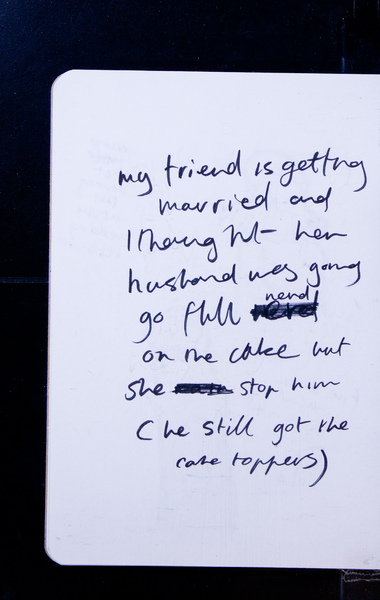 my friend is getting
married and
I thought her
husband was going
go full nerd
on the cake but
she stop him
(he still got the
cake toppers)